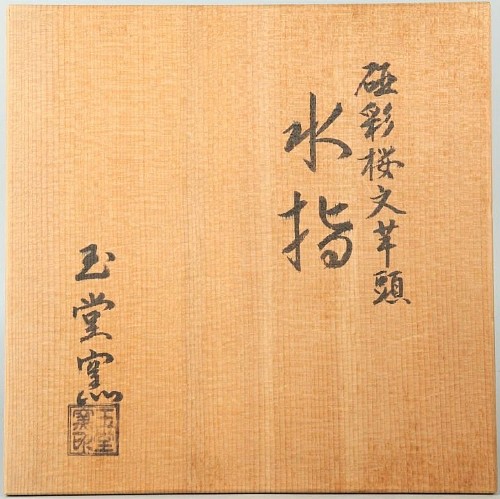 彩桜文芋頭
水指
玉堂窯
玉堂
窯印